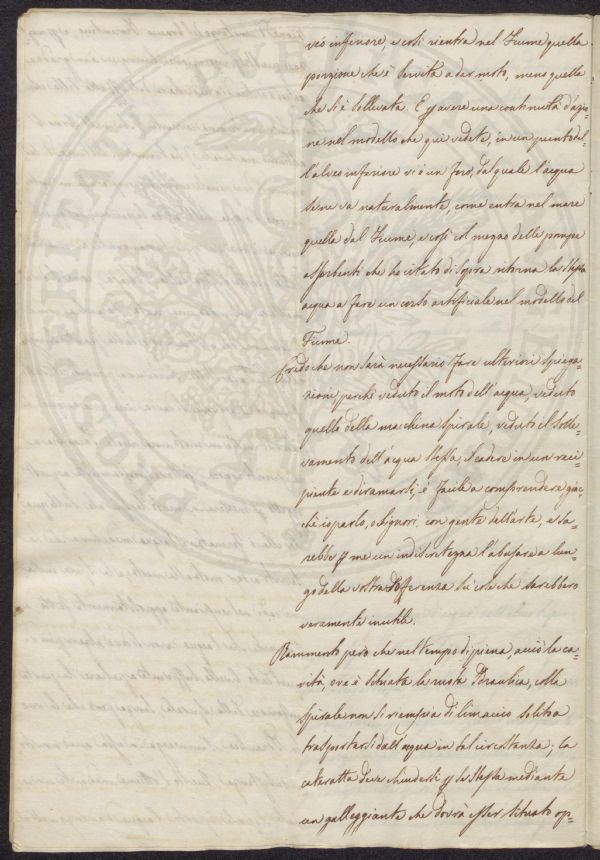 veo inferiore, e così rientra nel Fiume quella
porzione che è servita a dar moto, meno quella
che si è sollevata. E p avere una continuità d'azio=
ne nel modello che qui vedete, in un punto del=
l'alveo inferiore vi è un foro, dal quale l'acqua
se ne va naturalmente, come entra nel mare
quella dal Fiume, e così col mezzo delle pompe
assorbenti che ho citato di sopra ritorna la stessa
acqua a fare un corso artificiale nel modello del
Fiume.
Credo che non sarà necessario fare ulteriori spiega=
zioni, perchè veduto il moto dell'acqua, veduto
quello della macchina spirale, veduto il solle=
vamento dell'acqua stessa, il cadere in un reci=
piente e diramarsi, è facile a comprendere, giac=
chè io parlo, o Signori, con gente dell'arte, e sa=
rebbe p me un indiscretezza l'abusare a lun=
go della vostra sofferenza su cose che sarebbero
veramente inutili.
Rammento però che nel tempo di piena, acciò la ca=
vità, ove è situata la ruota Idraulica, colla
spirale non si riempia di limaccio solito a
trasportarsi dall'acqua in tal circostanza; la
cateratta deve chiudersi p se stessa mediante
un galleggiante che dovrà esser situato op=